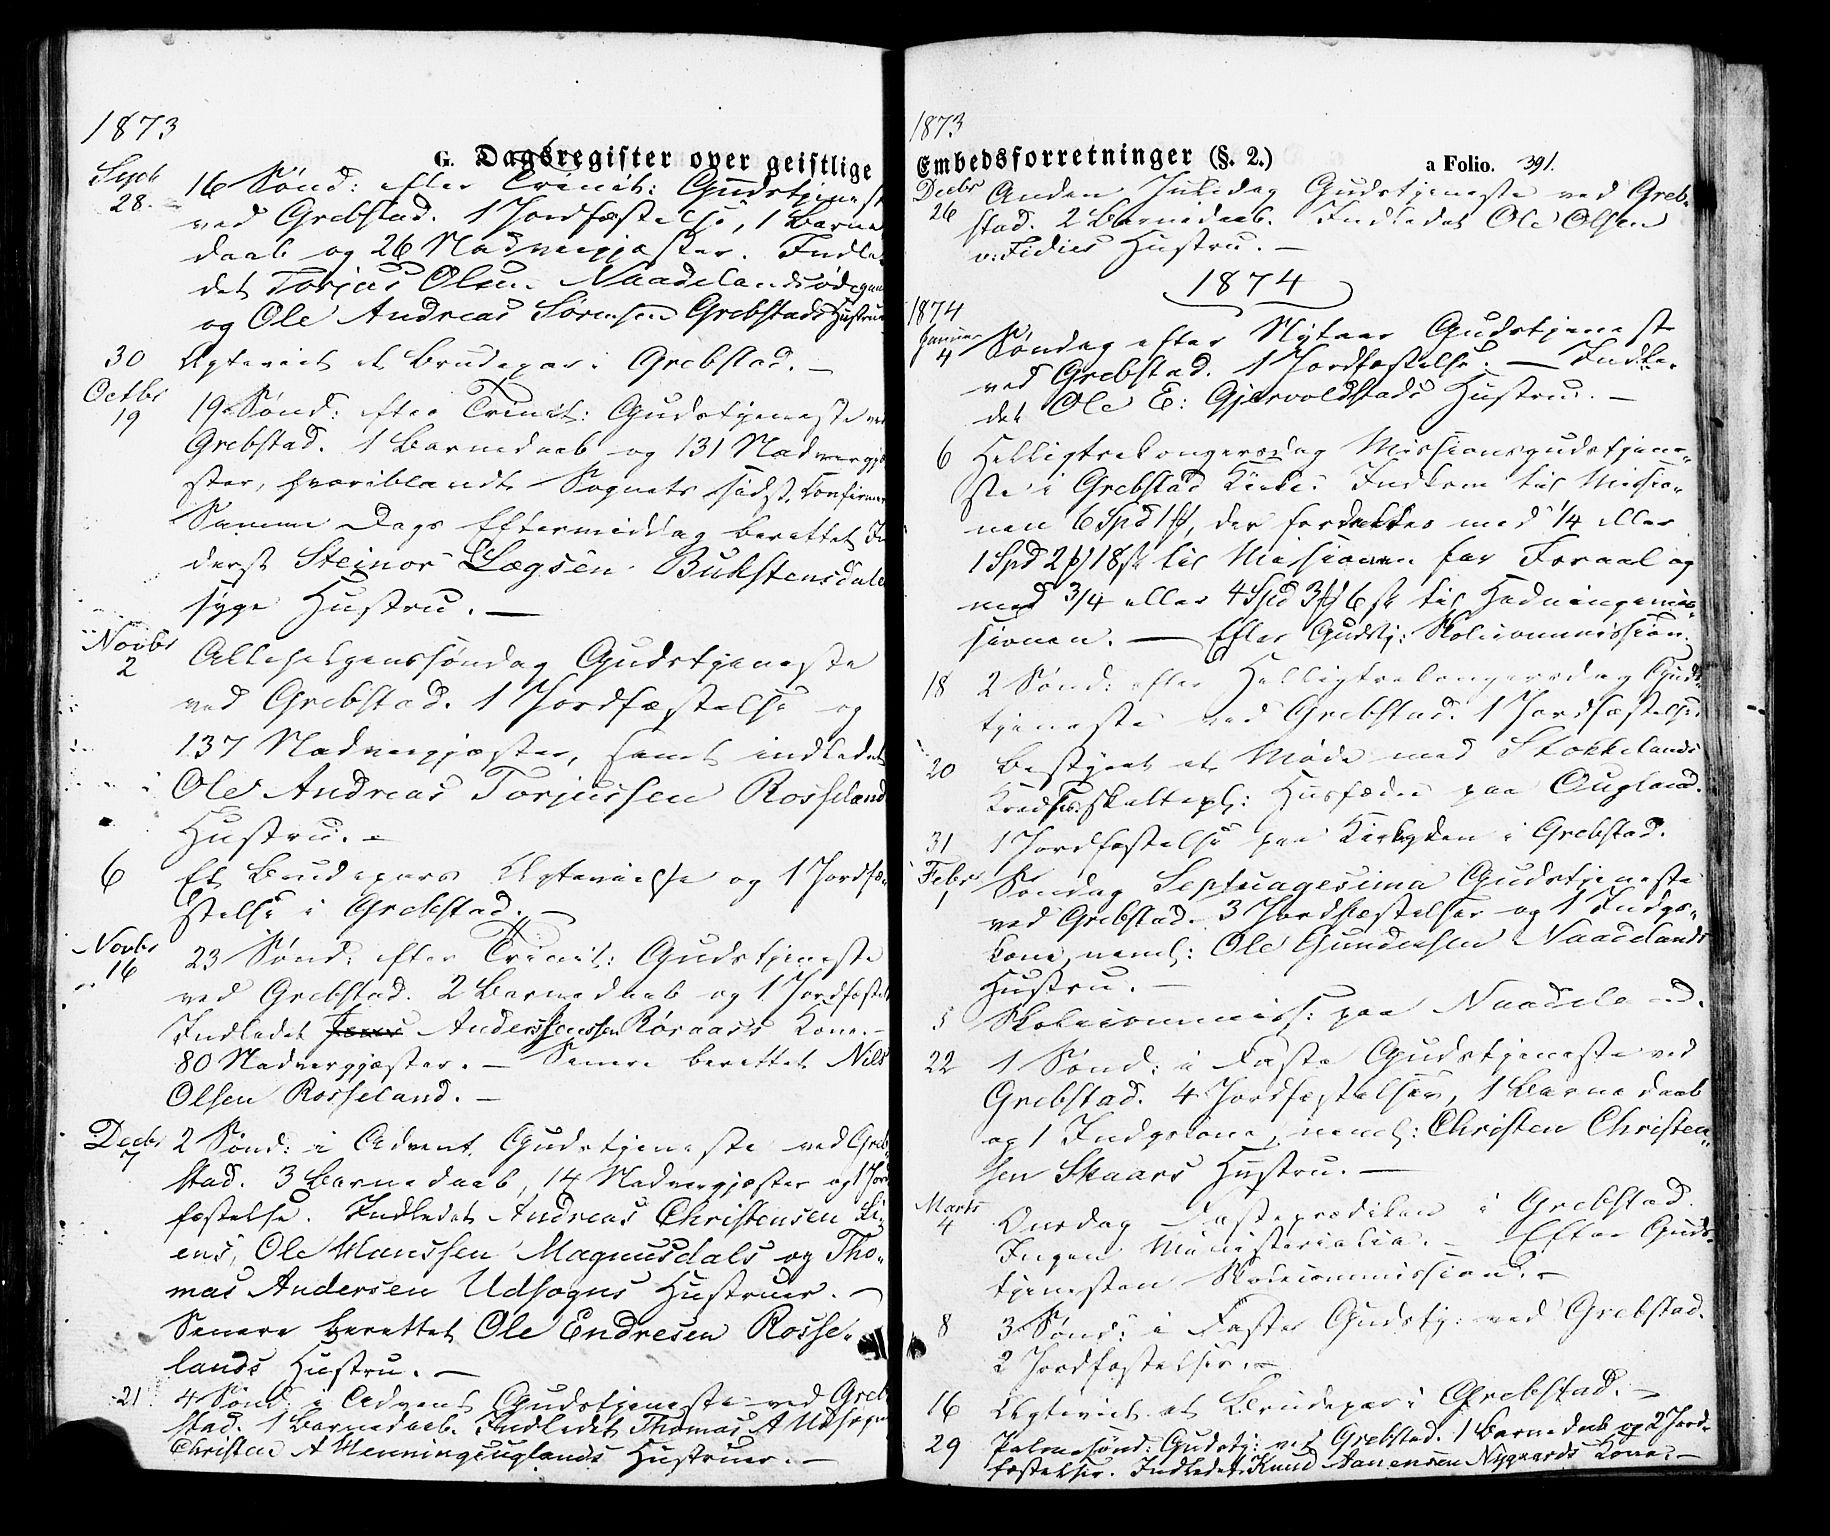 1873
G. Dagsregister over geistlige
Septb 28. 16 Sønd: efter Trinit: Gudstjeneste
ved Grebstad. 1 Jordfæstelse, 1 Barne
daab og 26 Nadvergjæster. Indle
det Torjus Olsen Naadelandsødegaa
og Ole Andreas Sørensen Grebstads Hustruer
30 Ægteviet et Brudepar i Grebstad. —
Octbr 19 19 Sønd: efter Trinit: Gudstjeneste ved
Grebstad. 1 Barnedaab og 131 Nadvergjæ
ster, hvoriblandt Sognets sidst. Confirmer
Samme Dags Eftermiddag berettet In
derst Steinor Lægsen Bukstensdals
syge Hustru. —
Novbr 2 Allehelgenssøndag Gudstjeneste
ved Grebstad. 1 Jordfæstelse og
137 Nadvergjæster, samt indledet
Ole Andreas Torjussen Rosseland
Hustru. —
6 Et Brudepars Ægtevielse og 1 Jordfæ
stelse i Grebstad. —
Novbr 16 23 Sønd: efter Trinit: Gudstjeneste
ved Grebstad. 2 Barnedaab og 1 Jordfæstel
Indledet Anders Jenssen Røraas Kone. —
80 Nadvergjæster. — Senere berettet Nils
Olsen Rosseland. —
Decbr 7 2 Sønd: i Advent Gudstjeneste ved Greb
stad. 3 Barnedaab, 14 Nadvergjæster og 1 Jord
fæstelse. Indledet Andreas Christensen Li
ens, Ole Hanssen Magnusdals og Tho-
mas Andersen Udsogns Hustruer. —
Senere berettet Ole Endresen Rosse-
lands Hustru. —
21 4 Sønd: i Advent Gudstjeneste ved Greb
stad. 1 Barnedaab. Indledet Thomas A Udsogn
Christen A Henningsuglands Hustruer. —
1873
Embedsforretninger (§. 2.) a Folio. 391.
Decbr 26 Anden Juledag Gudstjeneste ved Greb-
stad. 2 Barnedaab. Indledet Ole Olsen
v: Fidjes Hustru. —
1874
1874
Januar 4 Søndag efter Nytaar Gudstjeneste
ved Grebstad. 1 Jordfæstelse. — Indle-
det Ole E: Gjervoldstads Hustru. —
6 Helligtrekongersdag Missionsgudstjene-
ste i Grebstad Kirke. Indkom til Missio-
nen 6 Spd 1 ß, der fordeltes med 1/4 eller
1 Spd 2 ß 18 sk til Missionen for Israel og
med 3/4 eller 4 Spd 3 ß 6 sk til Hedningemis-
sionen. — Efter Gudstj: Skolecommission.
18 2 Sønd: efter Helligtrekongersdag Guds-
tjeneste ved Grebstad. 1 Jordfæstelse
20 Bestyret et Møde med Stokkelands
Kredses skattepl: Husfædre paa Augland.
31 1 Jordfæstelse paa Kirkegaarden i Grebstad.
Febr 1 Søndag Septuagesima Gudstjeneste
ved Grebstad. 3 Jordfæstelser og 1 Indgs-
kone, neml: Ole Gundersen Naadelands
Hustru. —
5 Skolecommiss: paa Naadeland.
22 1 Sønd: i Faste Gudstjeneste ved
Grebstad. 4 Jordfæstelser, 1 Barnedaab
og 1 Indgskone, neml: Christen Christen-
sen Skaars Hustru. —
Marts 4 Onsdag Fasteprædiken i Grebstad.
Ingen Ministerialia. — Efter Guds-
tjenesten Skolecommission. —
8 3 Sønd: i Faste Gudstj: ved Grebstad.
2 Jordfæstelser. —
16 Ægteviet et Brudepar i Grebstad. —
29 Palmesønd: Gudstj: ved Grebstad. 1 Barnedaab og 2 Jord-
fæstelser. Indledet Knud Aanensen Nygaards Kone. —